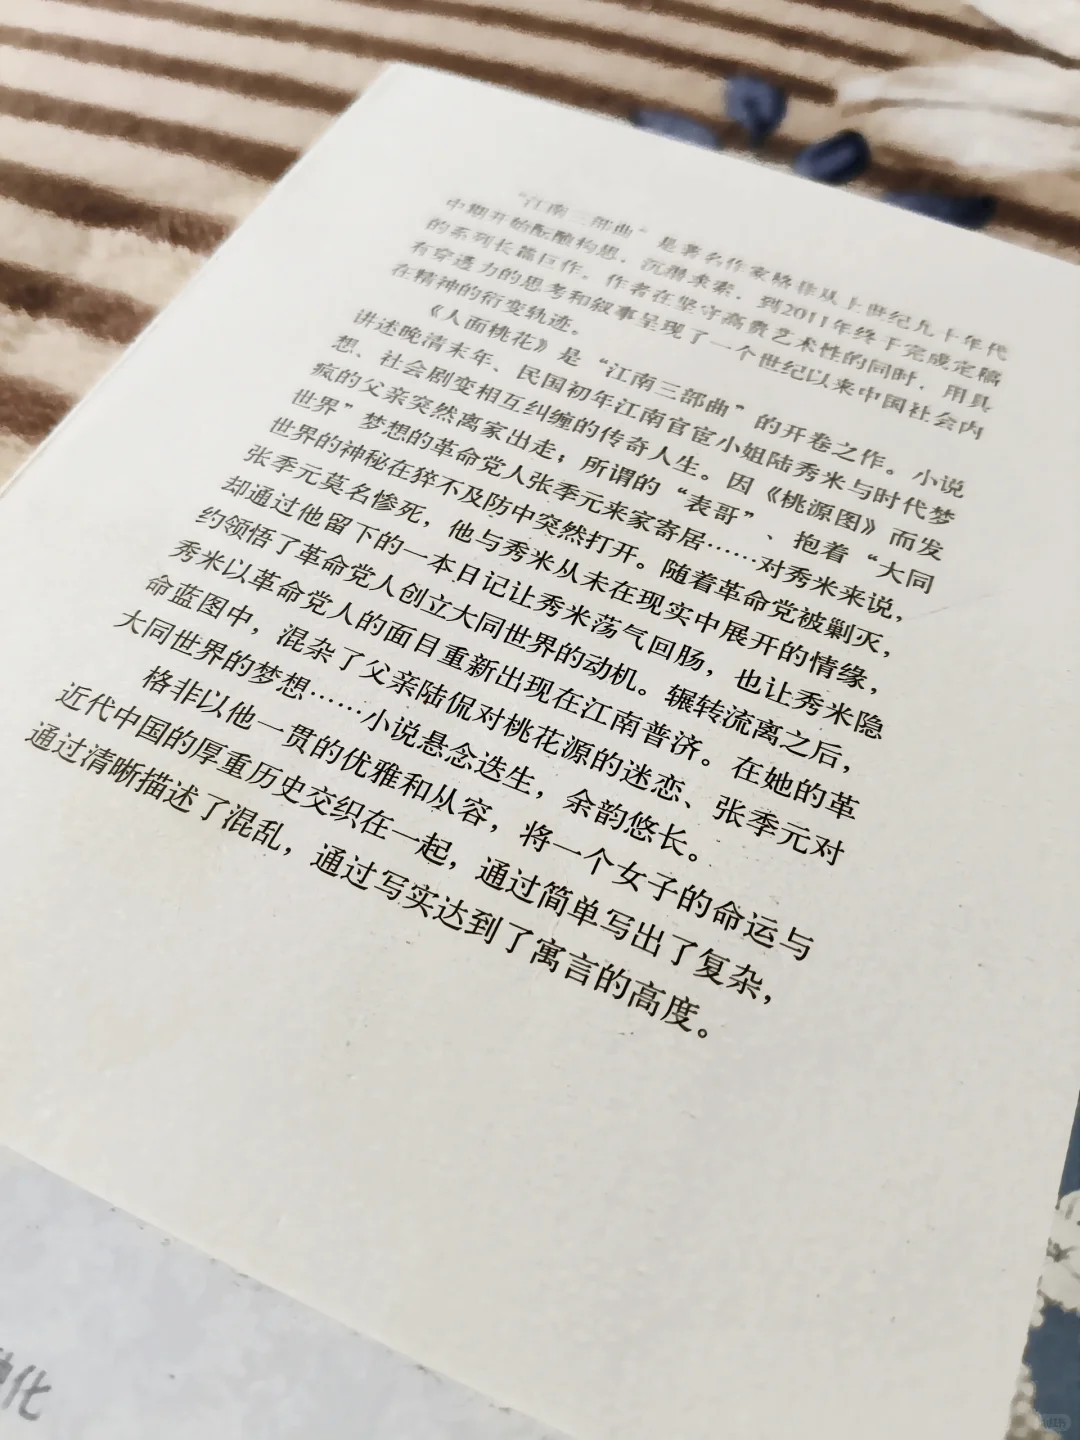 “江南三部曲”是著名作家格非从上世纪九十年代
中期开始酝酿构思,沉潜求索,到2011年终于完成定稿
的系列长篇巨作。作者在坚守高贵艺术性的同时,用具
有穿透力的思考和叙事呈现了一个世纪以来中国社会内
在精神的衍变轨迹。
《人面桃花》是“江南三部曲”的开卷之作。小说
讲述晚清末年、民国初年江南官宦小姐陆秀米与时代梦
想、社会剧变相互纠缠的传奇人生。因《桃源图》而发
疯的父亲突然离家出走;所谓的“表哥”、抱着“大同
世界”梦想的革命党人张季元来家寄居……对秀米来说,
世界的神秘在猝不及防中突然打开。随着革命党被剿灭,
张季元莫名惨死,他与秀米从未在现实中展开的情缘,
却通过他留下的一本日记让秀米荡气回肠,也让秀米隐
约领悟了革命党人创立大同世界的动机。辗转流离之后,
秀米以革命党人的面目重新出现在江南普济。在她的革
命蓝图中,混杂了父亲陆侃对桃花源的迷恋、张季元对
大同世界的梦想……小说悬念迭生,余韵悠长。
格非以他一贯的优雅和从容,将一个女子的命运与
近代中国的厚重历史交织在一起,通过简单写出了复杂,
通过清晰描述了混乱,通过写实达到了寓言的高度。
化